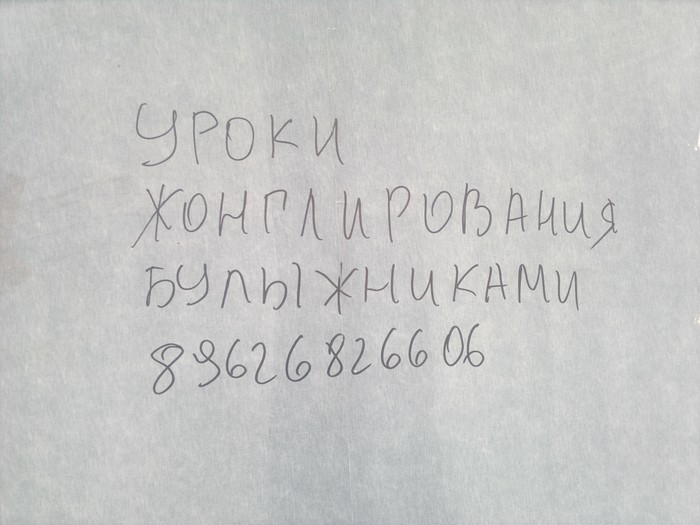 УРОКИ
ЖОНГЛИРОВАНИЯ
БУЛЫЖНИКАМИ
89626826606